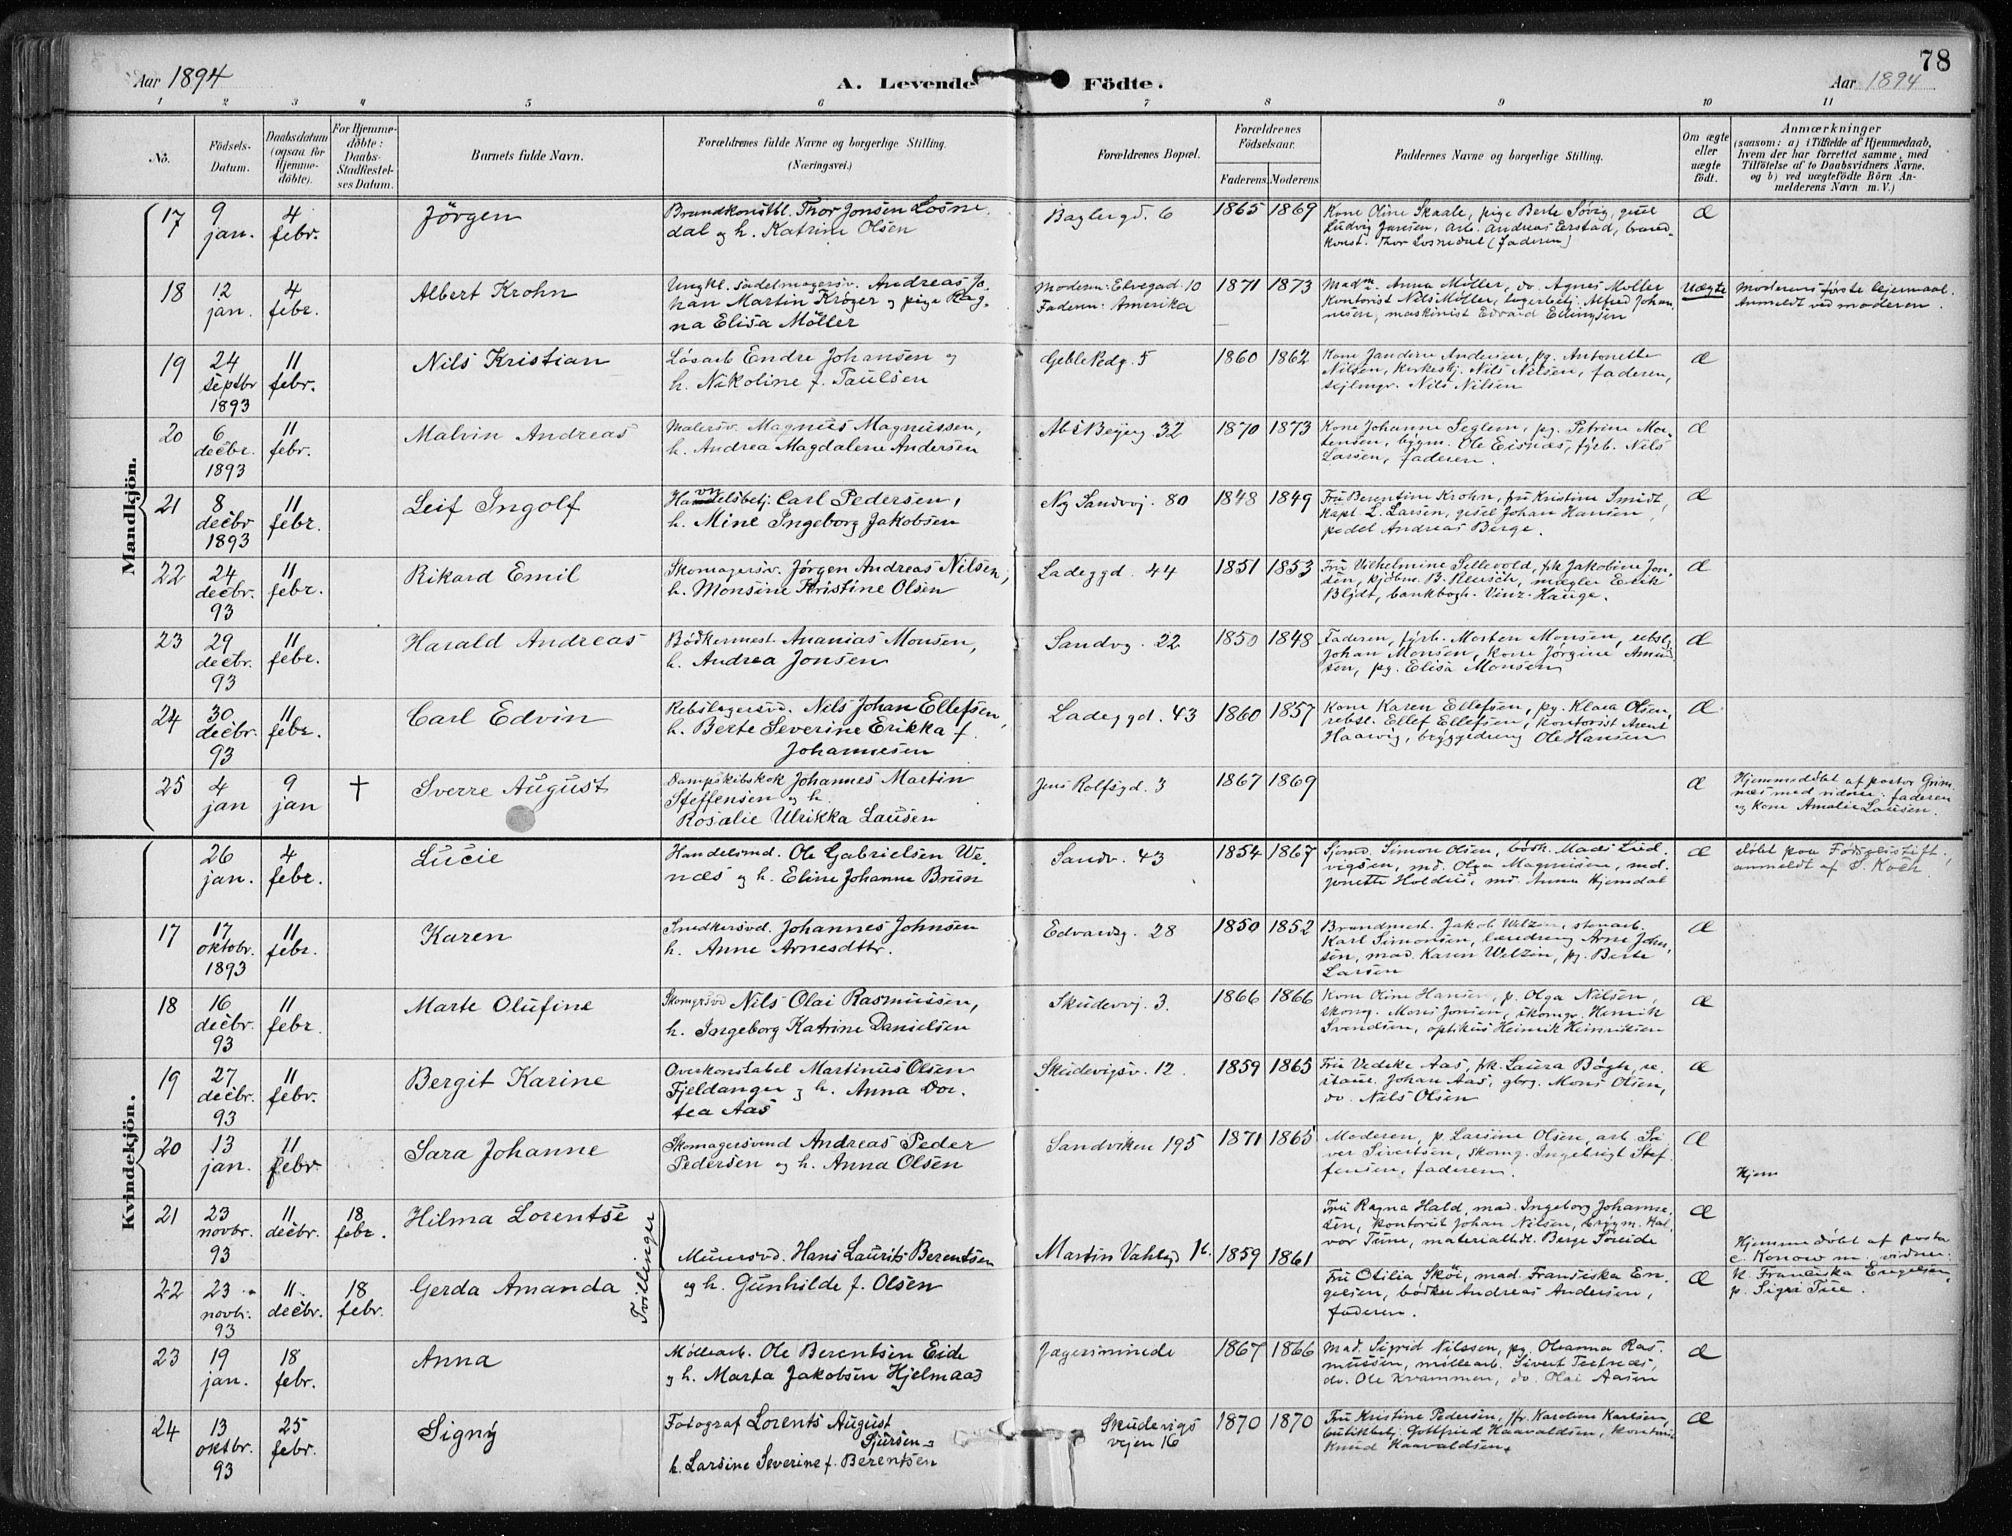 78
Aar 1894
A. Levende Födte.
Aar 1894
1 2 3 4 5 6 7 8 9 10 11
No.
Födsels-
Datum.
Daabsdatum
(ogsaa for
Hjemme-
döbte).
For Hjemme-
döbte:
Daabs-
Stadfæstel-
ses Datum.
Barnets fulde Navn.
Forældrenes fulde Navne og borgerlige Stilling.
(Næringsvei.)
Forældrenes Bopæl.
Forældrenes
Födselsaar.
Faderens. Moderens.
Faddernes Navne og borgerlige Stilling.
Om ægte
eller
uægte
födt.
Anmærkninger
(saasom: a) i Tilfælde af Hjemmedaab,
hvem der har forrettet samme, med
Tilföielse af to Daabsvidners Navne,
og b) ved uægtefödte Börn An-
melderens Navn m. V.)
Mandkjön.
17
9
jan.
4
febr.
Jörgen
Brandkonstbl. Thor Jonsen Losne
dal og h. Katrine Olsen
Baglergd. 6
1865 1869
Kone Oline Skaale, pige Berte Søvig, gesel
Ludvig Jansen, arb. Andreas Eerstad, brand-
konst. Thor Losnedal (faderen)
Æ
18
12
jan.
4
febr.
Albert Krohn
Ungkl. sadelmagersv. Andreas Jo
han Martin Krøger og pige Rag-
na Elisa Möller
Moderen: Elvegad. 10
Faderen: Amerika
1871 1873
Madm. Anna Møller, do. Agnes Møller
Kontorist Nils Møller, lagerbetj. Alfred Johan
nesen, maskinist Edvard Ellingsen
Uægte
Moderens første lejermaal.
Anmeldt ved moderen.
19
24
septbr
1893
11
febr.
Nils Kristian
Løsarb Endre Johansen og
h. Nikoline f. Paulsen
Geble Pedg. 5
1860 1862
Kone Janderne Andersen, pg. Antonette
Nilsen, kirkesbj. Nils Nilsen, faderen,
sejlmgr. Nils Nilsen
Æ
20
6
decbr.
1893
11
febr.
Malvin Andreas
Malersv. Magnus Magnussen,
h. Andrea Magdalene Andersen
32
1870 1873
Kone Johanne Seglem, pg. Petrine Mor-
tensen, bygm. Ole Eisnæs, fyrb. Nils
Larsen, faderen.
Æ
21
8
decbr
1893
11
febr.
Leif Ingolf
Handelsbetj. Carl Pedersen,
h. Mine Ingeborg Jakobsen
Ny Sandvvj. 80
1848 1849
Fru Berentine Krohn, fru Kristine Smidt,
Kapt. L. Larsen, gesel Johan Hansen,
pedel Andreas Berge.
Æ
22
24
decbr.
93
11
febr.
Rikard Emil
Skomagersv. Jørgen Andreas Nilsen,
h. Monsine Kristine Olsen
Ladeggd. 44
1851 1853
Fru Vilhelmine Sellevold, frk Jakobine Jon-
sen, kjøbm. B. Reusch, mægler Erik
Blydt, bankbogh. Vinz. Hauge.
Æ
23
29
decbr.
93
11
febr.
Harald Andreas
Bödkermest. Ananias Monsen,
h. Andrea Jonsen
Sandvg. 22
1850 1848
Faderen, fyrb. Morten Monsen, rebsl.
Johan Monsen, kone Jörgine Amund
sen, pg. Elisa Monsen
Æ
24
30
decbr.
93
11
febr.
Carl Edvin
Rebslagersvd. Nils Johan Ellefsen,
h. Berte Severine Erikka f.
Johannesen
Ladeggd. 43
1860 1857
Kone Karen Ellefsen, pg. Klara Olsen,
rebsl. Ellef Ellefsen, kontorist Arent
Haawig, bryggedreng Ole Hansen
Æ
25
4
jan
9
jan
†
Sverre August
Dampskibskok Johannes Martin
Steffensen og h.
Rosalie Ulrikka Lausen
Jens Rolfsgd. 3
1867 1869
Æ
Hjemmedöbt af pastor Grim-
næs med vidner: faderen
og kone Amalie Lausen.
Kvindekjön.
26
jan.
4
febr.
Lucie
Handelsmd. Ole Gabrielsen We-
næs og h. Eline Johanne Brun
Sandv. 43
1854 1867
Sjømd. Simon Olsen, bøsk. Mads Lud-
vigsen, md. Olga Magnusen, md.
Jonette Holdus, md. Anna Hjemdal
Æ
döbt paa Födselsstift.,
anmeldt af S. Koch
17
17
oktobr.
1893
11
febr.
Karen
Snedkersvd. Johannes Johnsen
h. Anne Arnesdttr.
Edvardsg. 28
1850 1852
Brandmest. Jakob Welzin, stenarb.
Karl Simonsen, læredreng Arne John-
sen, mad. Karen Welzin, pg. Berte
Larsen
Æ
18
16
decbr.
93
11
febr.
Marte Olufine
Skomgrsvd Nils Olai Rasmussen,
h. Ingeborg Katrine Danielsen
Skudevvj. 3.
1866 1866
Kone Oline Hansen, p. Olga Nilsen,
skomg. Mons Jonsen, skomgr. Henrik
Svendsen, optikus Heinrik Heinriksen
Æ
19
27
decbr.
93
11
febr.
Bergit Karine
Overkonstabel Martinus Olsen
Fjeldanger og h. Anna Dor-
tea Aas
Skudevigsv. 12.
1859 1865
Fru Vedeke Aas, frk. Laura Bögh, re-
staur. Johan Aas, gbrg. Mons Olsen,
do. Nils Olsen
Æ
20
13
jan.
11
febr.
Sara Johanne
Skomagersvend Andreas Peder
Pedersen og h. Anna Olsen
Sandviken 195
1871 1865
Moderen, p. Larsine Olsen, arb. Si
ver Sivertsen, skomg. Ingebrigt Stef-
fensen, faderen.
Æ
Hjem
21
23
novbr.
93
11
decbr.
18
febr.
Hilma Lorentse
Tvillinger
Murersvd. Hans Laurits Berentsen
og h. Gunhilde f. Olsen
Martin Vahlsgd 16.
1859 1861
Fru Ragna Hald, mad. Ingeborg Johanne-
sen, kontorist Johan Nilsen, brygm. Hal-
vor Tune, materialhdl. Berge Søreide
Æ
Hjemmedöbt af pastor
C. Konow m. vidner:
K. Franciska Engelsen,
p. Siger Tue.
22
23
novbr.
93
11
decbr.
18
febr.
Gerda Amanda
Fru Otilia Skøi, mad. Fransiska En-
gelsen, bødker Andreas Andersen,
faderen.
Æ
23
19
jan.
18
febr.
Anna
Møllearb. Ole Berentsen Eide
og h. Marta Jakobsen Hjelmaas
Jægersminde
1867 1866
Mad. Sigrid Nilssen, pg. Oleanna Ras-
mussen, møllearb. Sivert Teetnæs,
do. Ole Kvammen, do. Olai Aasen
Æ
24
13
oktbr.
93
25
febr.
Signy
Fotograf Lorents August
Sjursen
h. Larsine Severine f. Berentsen
Skudevigs
vejen 16
1870 1870
Fru Kristine Pedersen, fr. Karoline Karlsen,
butikbetj. Gottfried Haavaldsen, kontorist
Knud Haavaldsen.
Æ